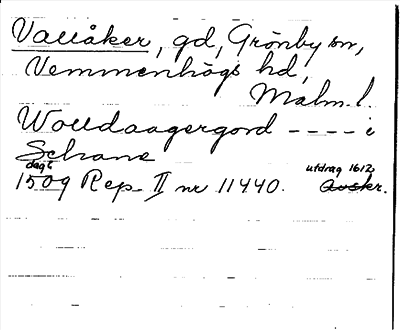 Vallåker, gd, Grönby sn,
Vemmenhögs hd,
Malm. l.
Wolldaagergord - - - - i
Schane
dagt. utdrag 1612
1509 Rep. II nr 11440. Avskr.